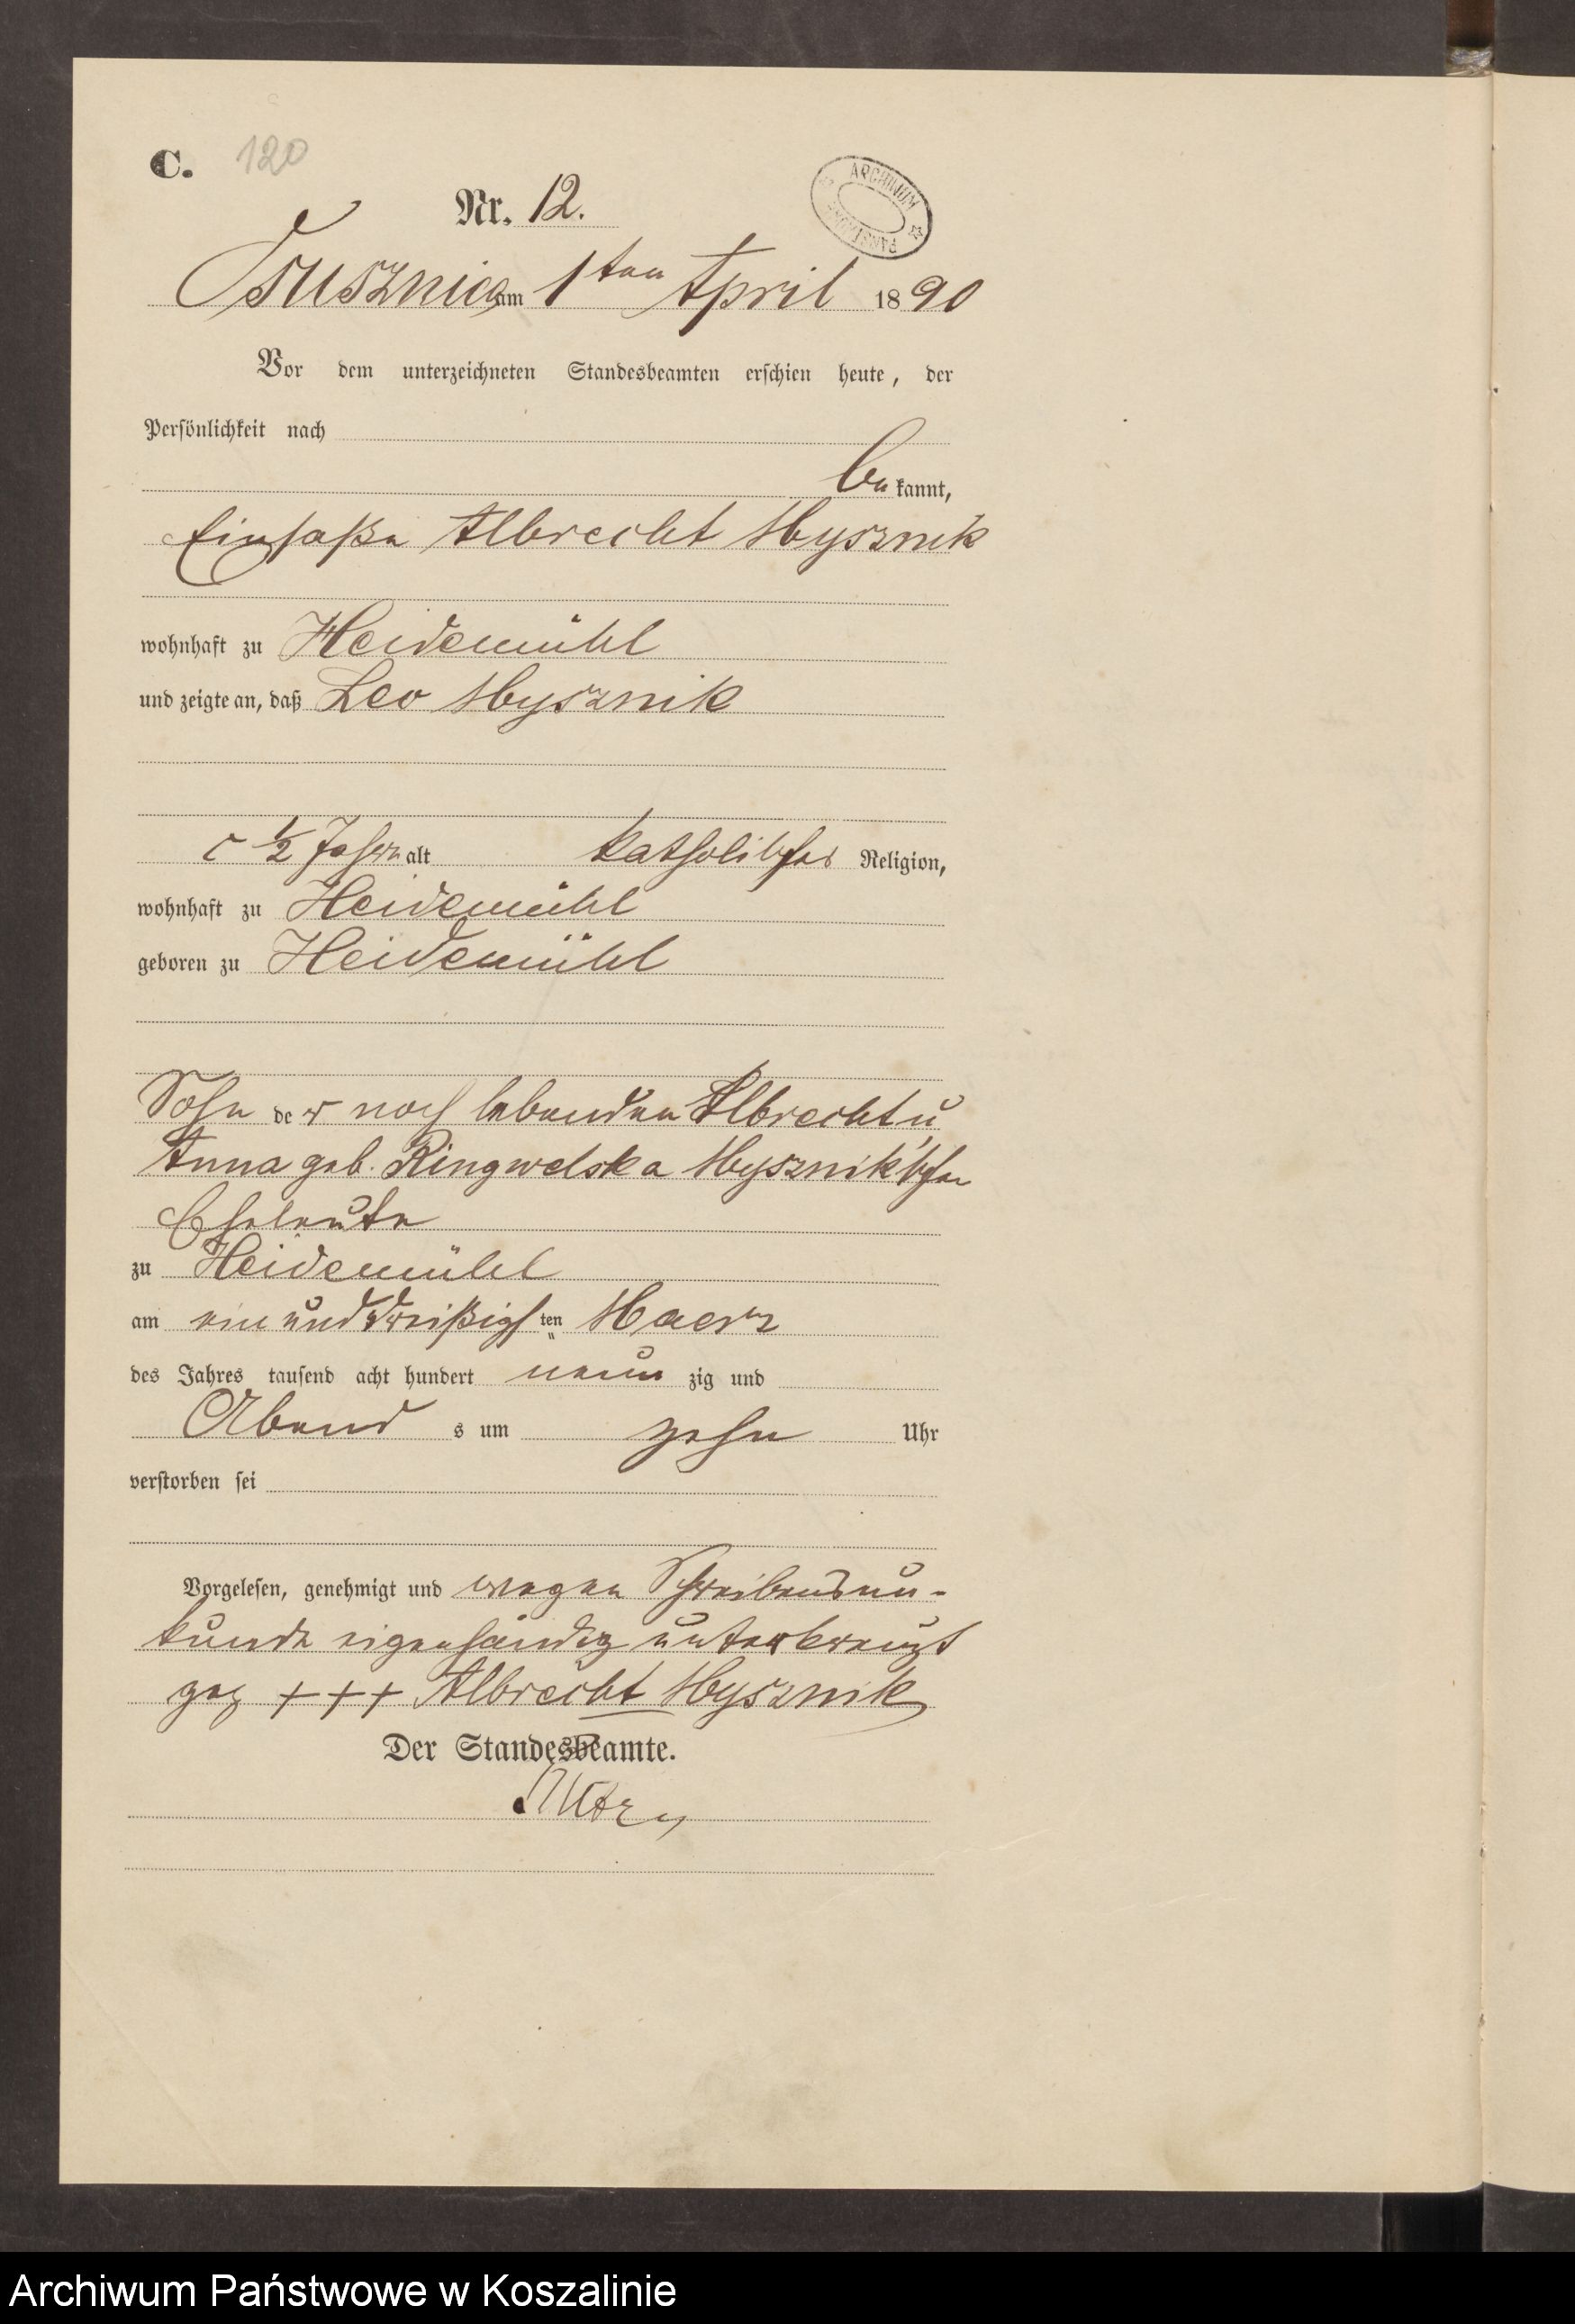 C. 120
ARCHIWUM PAŃSTWOWE
Nr. 12.
Osusznica am 1ten April 1890
Vor dem unterzeichneten Standesbeamten erschien heute, der
Persönlichkeit nach
be kannt,
Einsaße Albrecht Mysznik
wohnhaft zu Heidemühl
und zeigte an, daß Leo Mysznik
5 1/2 Jahre alt katholischer Religion,
wohnhaft zu Heidemühl
geboren zu Heidemühl
Sohn der noch lebenden Albrecht u
Anna geb. Ringwelska Mysznik'schen
Eheleute
zu Heidemühl
am ein und dreißigsten Maerz
des Jahres tausend acht hundert neun zig und
Abend s um zehn Uhr
verstorben sei
Vorgelesen, genehmigt und wegen Schreibensun-
kunde eigenhändig unterkreuzt
gez +++ Albrecht Mysznik
Der Standesbeamte.
Archiwum Państwowe w Koszalinie